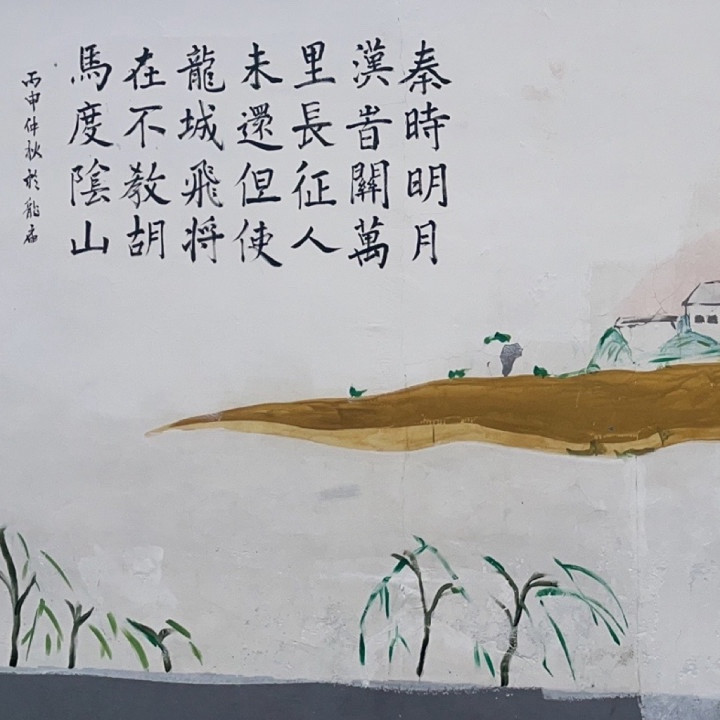 秦時明月
漢旹關萬
里長征人
未還但使
龍城飛将
在不教胡
馬度陰山
丙申仲秋於龍庙